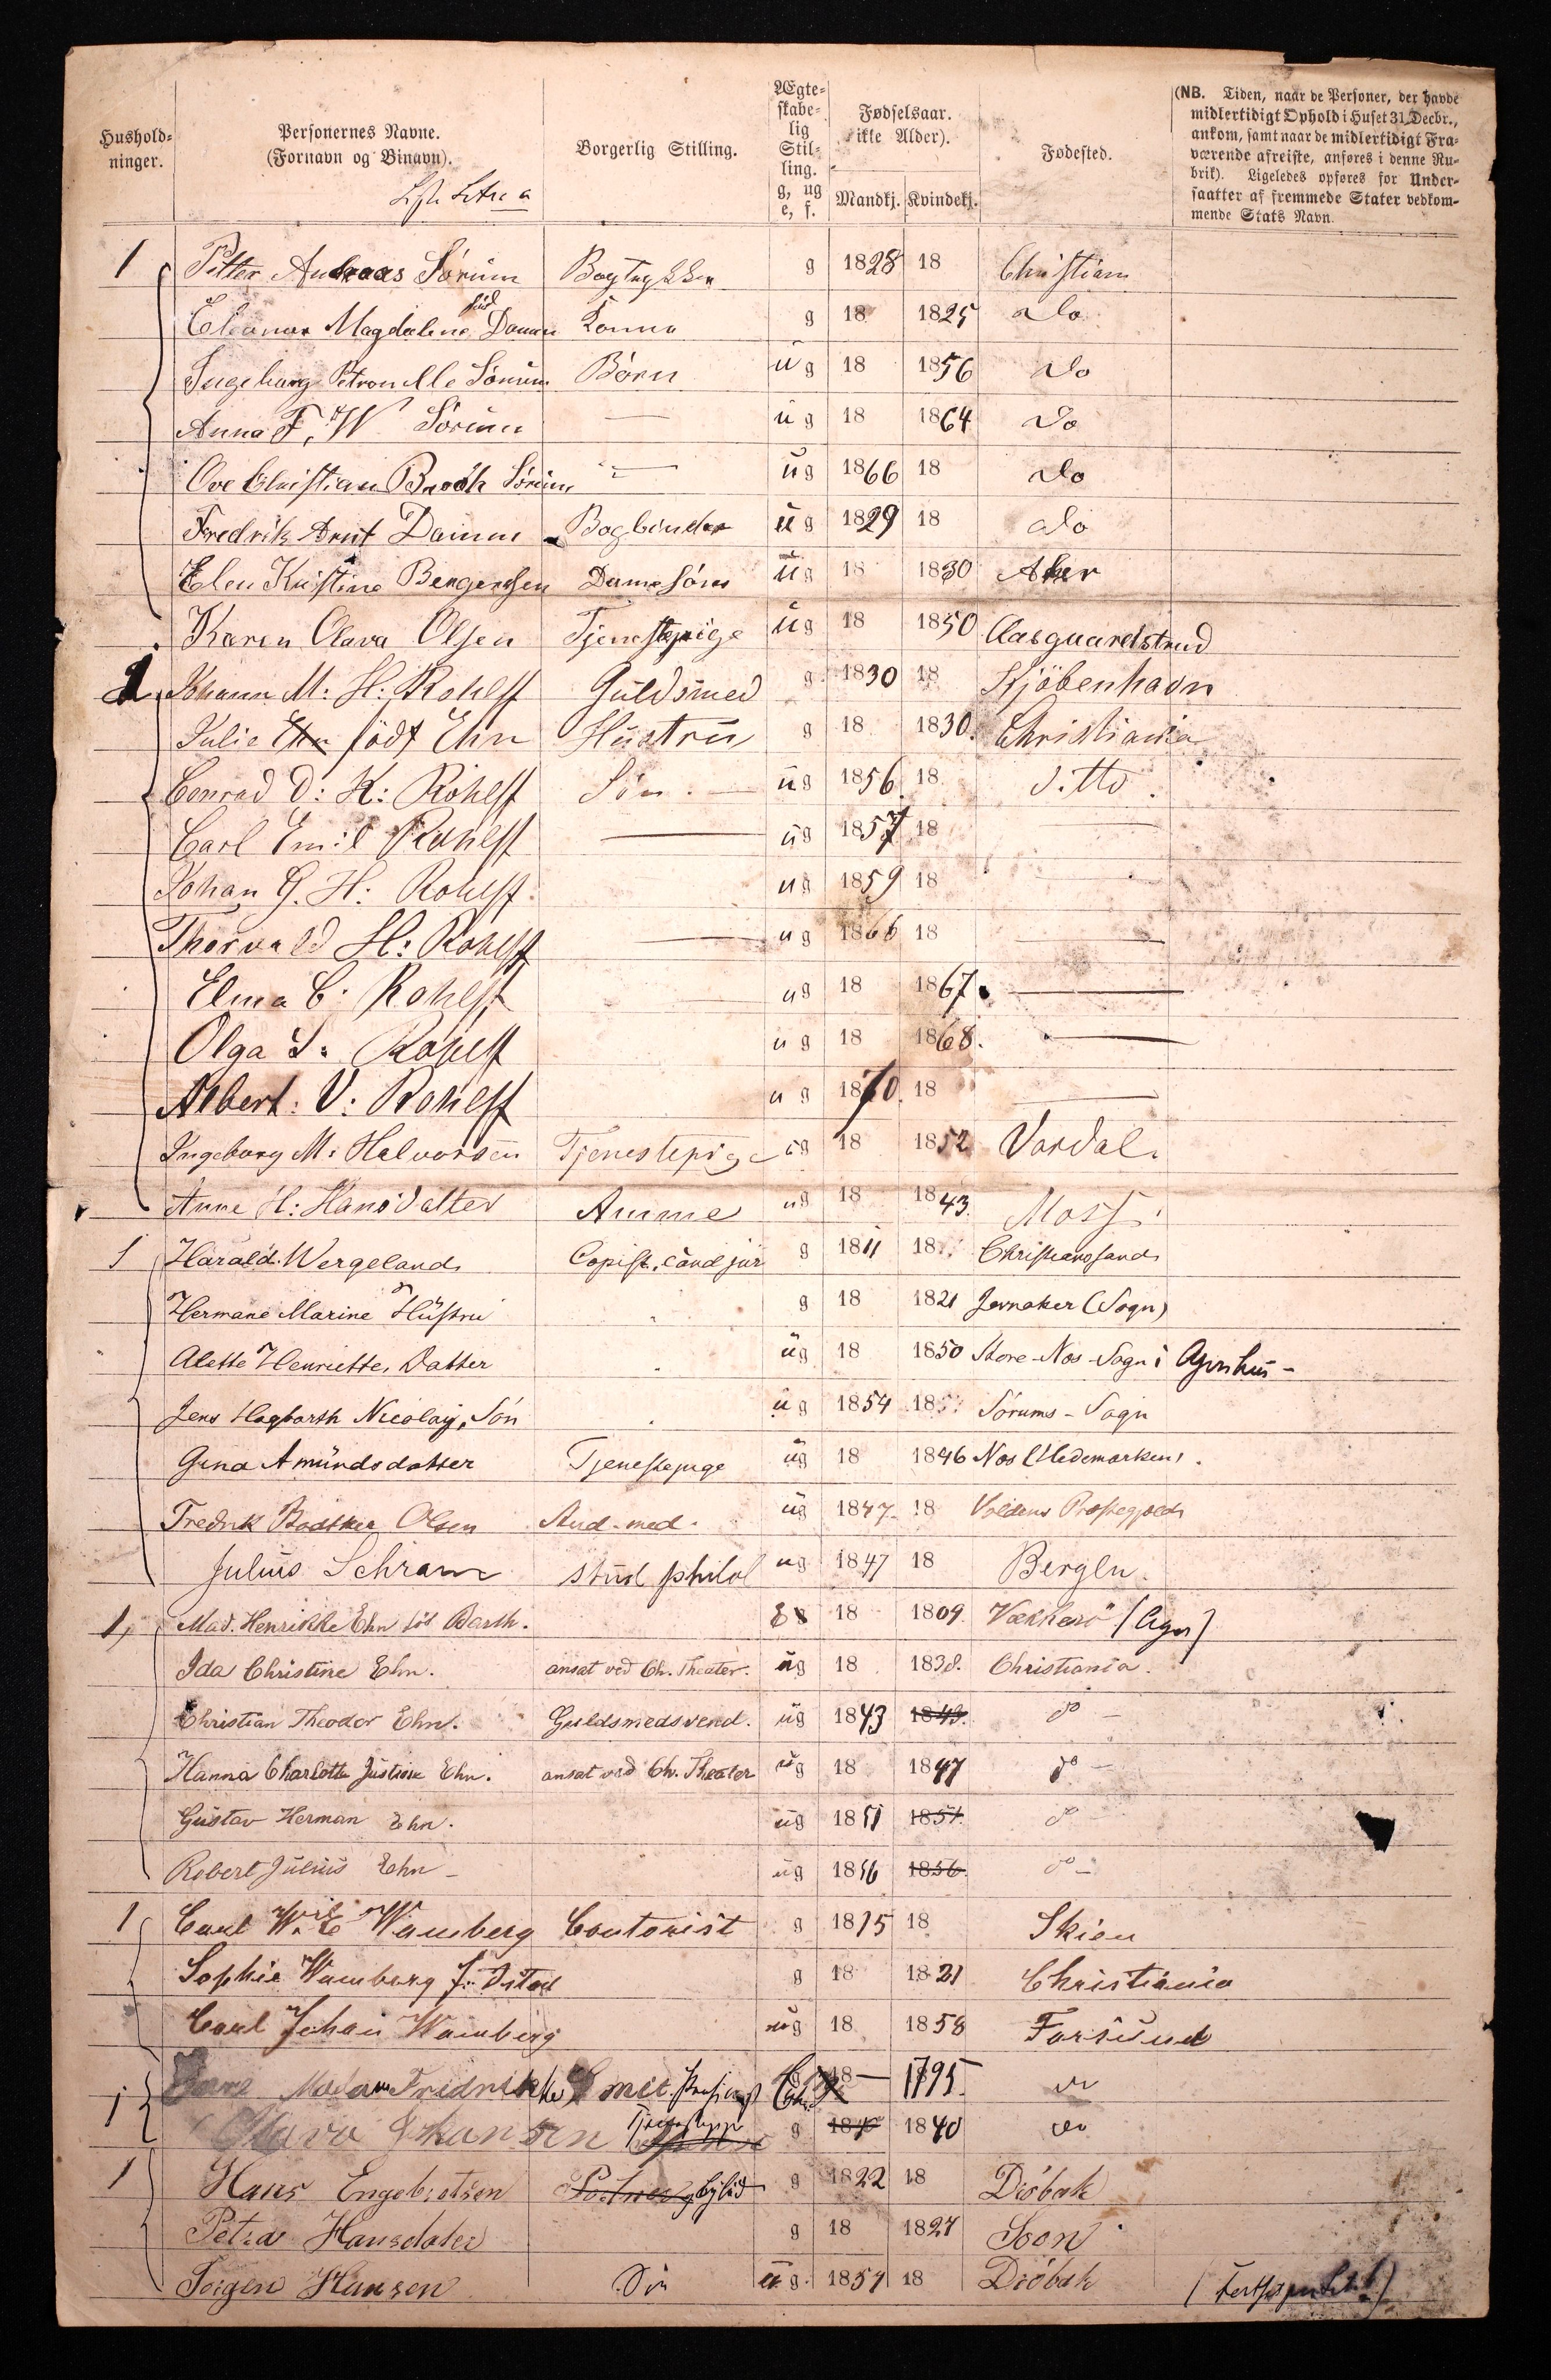 Hushold-
ninger.
Personernes Navne.
(Fornavn og Binavn).
Borgerlig Stilling.
Ægte-
skabe-
lig
Stil-
ling.
g, ug
e, f.
Fødselsaar.
(ikke Alder).
Mandkj. Kvindekj.
Fødested.
(NB. Tiden, naar de Personer, der havde
midlertidigt Ophold i Huset 31 Decbr.,
ankom, samt naar de midlertidigt Fra-
værende afreiste, anføres i denne Ru-
brik). Ligeledes opføres for Under-
saatter af fremmede Stater vedkom-
mende Stats Navn.
1 Petter Andreas Sörum Bogtrykker g 1828 18 Christiania
Eleonora Magdalena född Damm Konna g 18 1825 Do
Ingeborg Petronelle Sörum Börn ug 18 1856 Do
Anna F. W Sörum — ug 18 1864 Do
Ove Christian Broch Sörum — ug 1866 18 Do
Fredrik Arnt Damm Bogbinder ug 1829 18 Do
Elen Kristine Bengerssen ug 18 1830 Aker
Karen Olava Olsen Tjenstepige ug 18 1850 Aasguardstrand
1. Johann M: H: Rohlff Guldsmed g 1830 18 Kjöbenhavn
Julie Ehn född Ehn Hustru g 18 1830. Christiania
Conrad D: K: Rohlff Sön. — ug 1856. 18 Ditto.
Carl Emil Rohlff — ug 1857 18 —
Johan G. H: Rohlff. ug 1859 18
Thorvald H: Rohlff — ug 1866 18 —
Elma C: Rohlff ug 18 1867. —
Olga S: Rohlff ug 18 1868. —
Albert: V: Rohlff ug 1870. 18 —
Ingeborg M: Halvorsen Tjenestepige ug 18 1852 Vardal.
Anne H: Hansdatter Amme ug 18 1843. Moss
1 Harald Wergeland Copist, cand jur g 1811 18 Christianssand
Hermane Marine Hustru g 18 1821 Jevnaker (Sogn)
Alette Henriette, Datter ug 18 1850 Store-Nes-Sogn i Agershus-
Jens Hagbarth Nicolay, Sön ug 1854 18 Sörums-Sogn
Gina Amundsdatter Tjenestepige ug 18 1846 Nes (Hedemarken).
Fredrik Bödtker Olsen Stud. med. ug 1847 18 Voldens Præstegjeld
Julius Schram stud philol ug 1847 18 Bergen.
1, Mad. Henrikke Ehn föd Barth. E 18 1809. Vækkerö (Ager)
Ida Christine Ehn. ansat ved Ch. Theater. ug 18 1838. Christiania.
Christian Theodor Ehn. Guldsmedsvend. ug 1843 1843. do —
Hanna Charlotte Justine Ehn. ansat ved Ch. Theater ug 18 1847 do —
Gustav Herman Ehn. ug 1851 1851. do
Robert Julius Ehn — ug 1856 1856. do —
1 Carl Wil Wamberg Contorist g 1815 18 Skien
Sophie Wamberg g 18 1821 Christiania
Carl Johan Wamberg ug 18 1858 Farsund
Madam Fridrikke 18— 1795. do
1 Olava Johansen Tjenestepige g 18 1840 do
1 Hans Engebretsen g 1822 18 Dröbak
Petra Hansdatter g 18 1827 Soon
Jörgen Hansen Sön ug. 1857 18 Dröbak